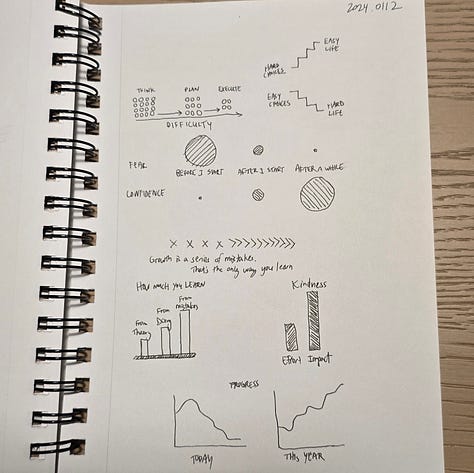 2024.0112
EASY
LIFE
HARD
CHOICES
THINK PLAN EXECUTE
EASY
CHOICES
HARD
LIFE
DIFFICULTY
FEAR
BEFORE I START AFTER I START AFTER A WHILE
CONFIDENCE
Growth is a series of mistakes.
That's the only way you learn
HOW MUCH YOU LEARN
Kindness
From
Theory
From
Doing
From
mistakes
Effort Impact
PROGRESS
TODAY
THIS YEAR